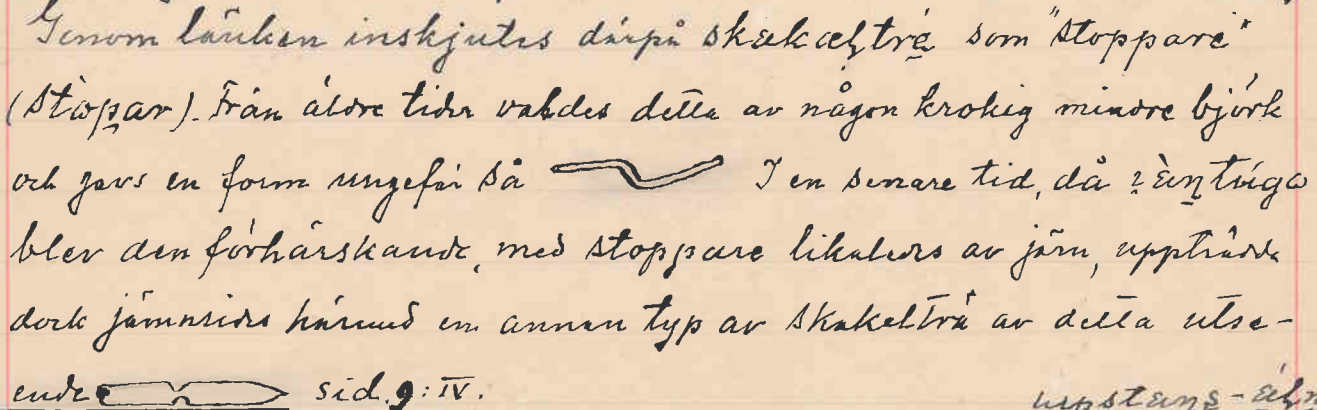 Genom länken inskjutes därpå skakælträ som "stoppare"
(stòpar). Från äldre tider valdes detta av någon krokig mindre björk
och gavs en form ungefär så I en senare tid, då
blev den förhärskande, med stoppare likaledes av järn, uppträdde
dock jämnsides härmed en annan typ av skakelträ av detta utse-
ende sid. 9: IV.